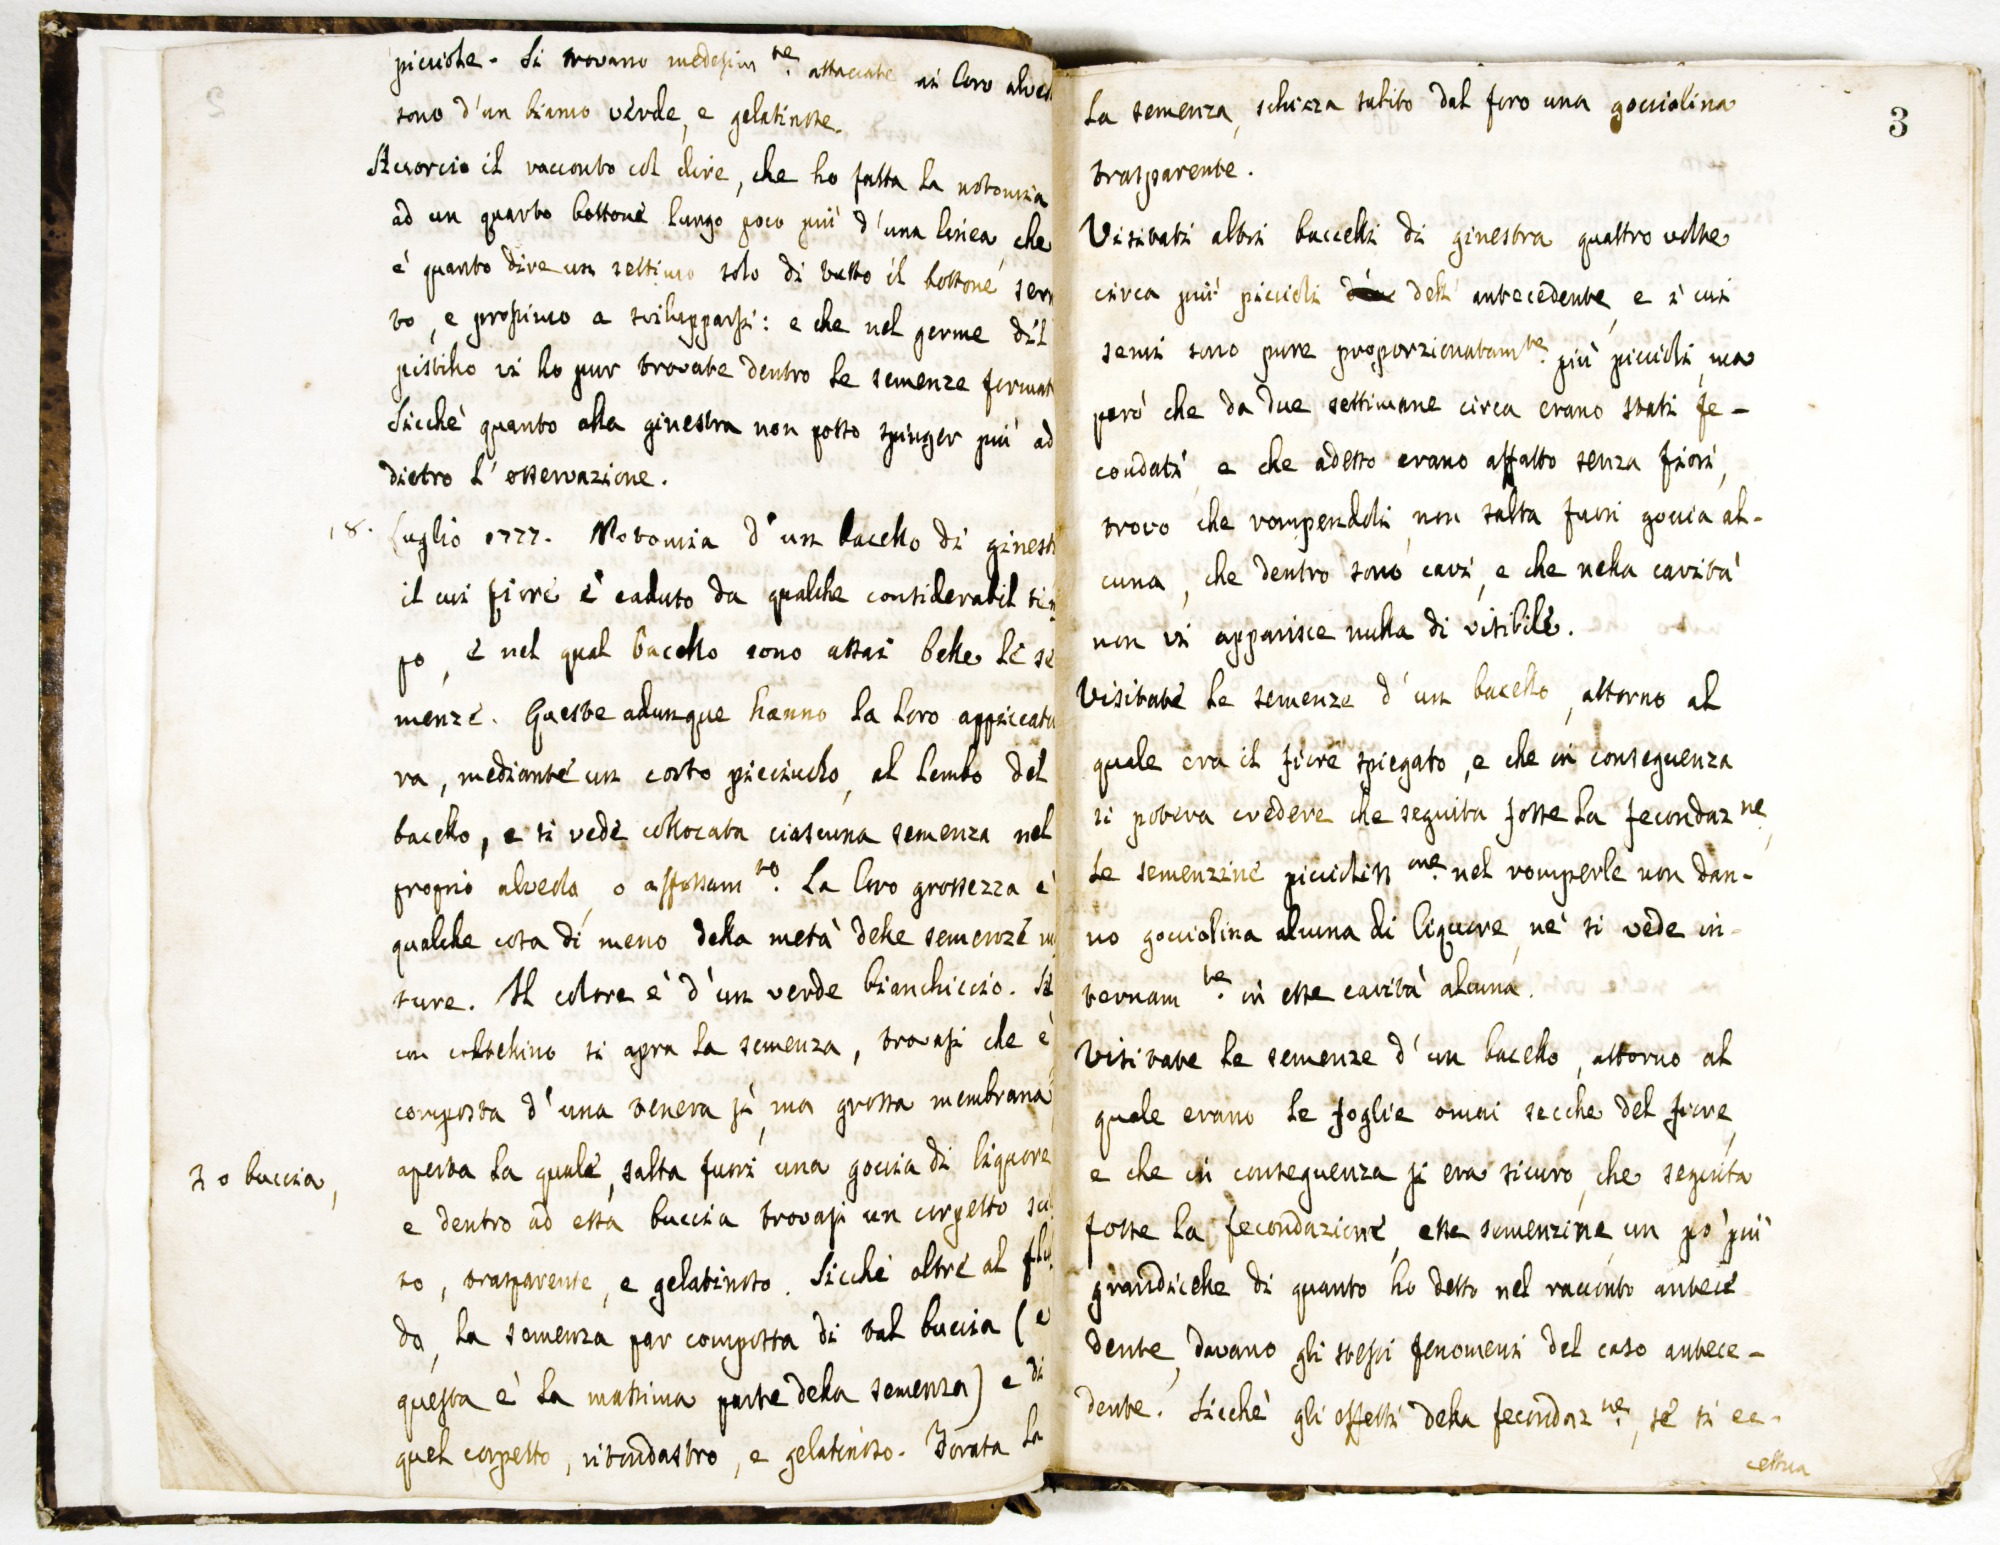 picciole. Si trovano medesim.te attaccate ai loro alveoli
sono d'un bianco verde, e gelatinose.
Accorcio il racconto col dire, che ho fatta la notomia
ad un quarto bottone lungo poco più d'una linea, che
è quanto dire un settimo solo di tutto il bottone serra
to, e prossimo a svilupparsi: e che nel germe del
pistillo vi ho pur trovate dentro le semenze format
Sicchè quanto alla ginestra non posso spinger più ad
dietro l'osservazione.
18. Luglio 1777. Notomia d'un bacello di ginest
il cui fiore è caduto da qualche considerabil tem
po, e nel qual bacello sono assai belle le se
menze. Queste adunque hanno la loro appiccatu
ra, mediante un corto picciuolo, al lembo del
bacello, e si vede collocata ciascuna semenza nel
proprio alveolo, o affossam.to La loro grossezza è
qualche cosa di meno della metà delle semenze ma
ture. Il colore è d'un verde bianchiccio. Se
con coltellino si apra la semenza, trovasi che è
composta d'una tenera sì, ma grossa membrana,
o buccia,
aperta la quale, salta fuori una goccia di liquore
e dentro ad essa buccia trovasi un corpetto
so, trasparente, e gelatinoso. Sicchè oltre al flui
do, la semenza par composta di tal buccia (e
questa è la massima parte della semenza) e di
quel corpetto, ritondastro, e gelatinoso. Forata la
3
la semenza, schizza subito dal foro una gocciolina
trasparente.
Visitati altri baccelli di ginestra quattro volte
circa più piccioli dell' antecedente, e i cui
semi sono pure proporzionatam.te più piccioli, ma
però che da due settimane circa erano stati fe-
condati, e che adesso erano affatto senza fiori,
trovo che rompendoli non salta fuori goccia al-
cuna, che dentro sono cavi, e che nella cavità
non vi apparisce nulla di visibile.
Visitate le semenze d'un bacello, attorno al
quale era il fiore spiegato, e che in conseguenza
si poteva credere che seguita fosse la fecondaz.ne,
le semenzine picciolis.me nel romperle non dan-
no gocciolina alcuna di liquore, nè si vede in-
ternam.te in esse cavità alcuna.
Visitate le semenze d'un bacello, attorno al
quale erano le foglie omai secche del fiore,
e che in conseguenza si era sicuro, che seguita
fosse la fecondazione, esse semenzine, un po' più
grandicelle di quanto ho detto nel racconto antece
dente, davano gli stessi fenomeni del caso antece-
dente. Sicchè gli effetti della fecondaz.ne, se si ec-
cettua